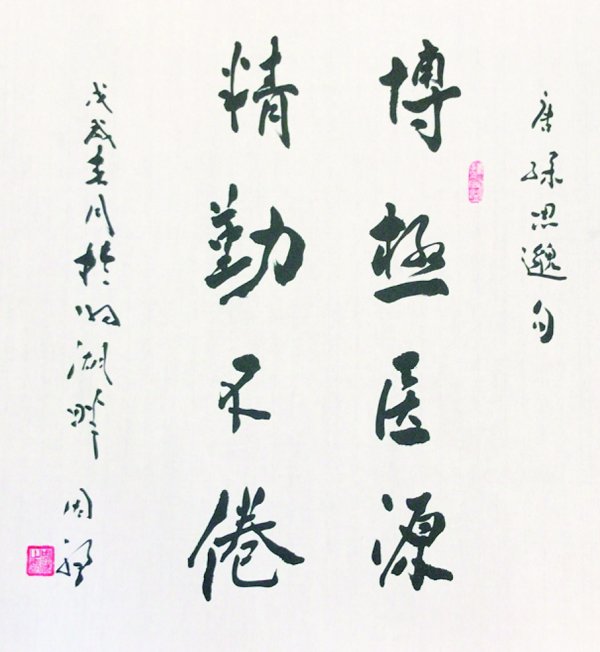 唐孙思邈句
博极医源
精勤不倦
戊戌春月于明湖畔
周